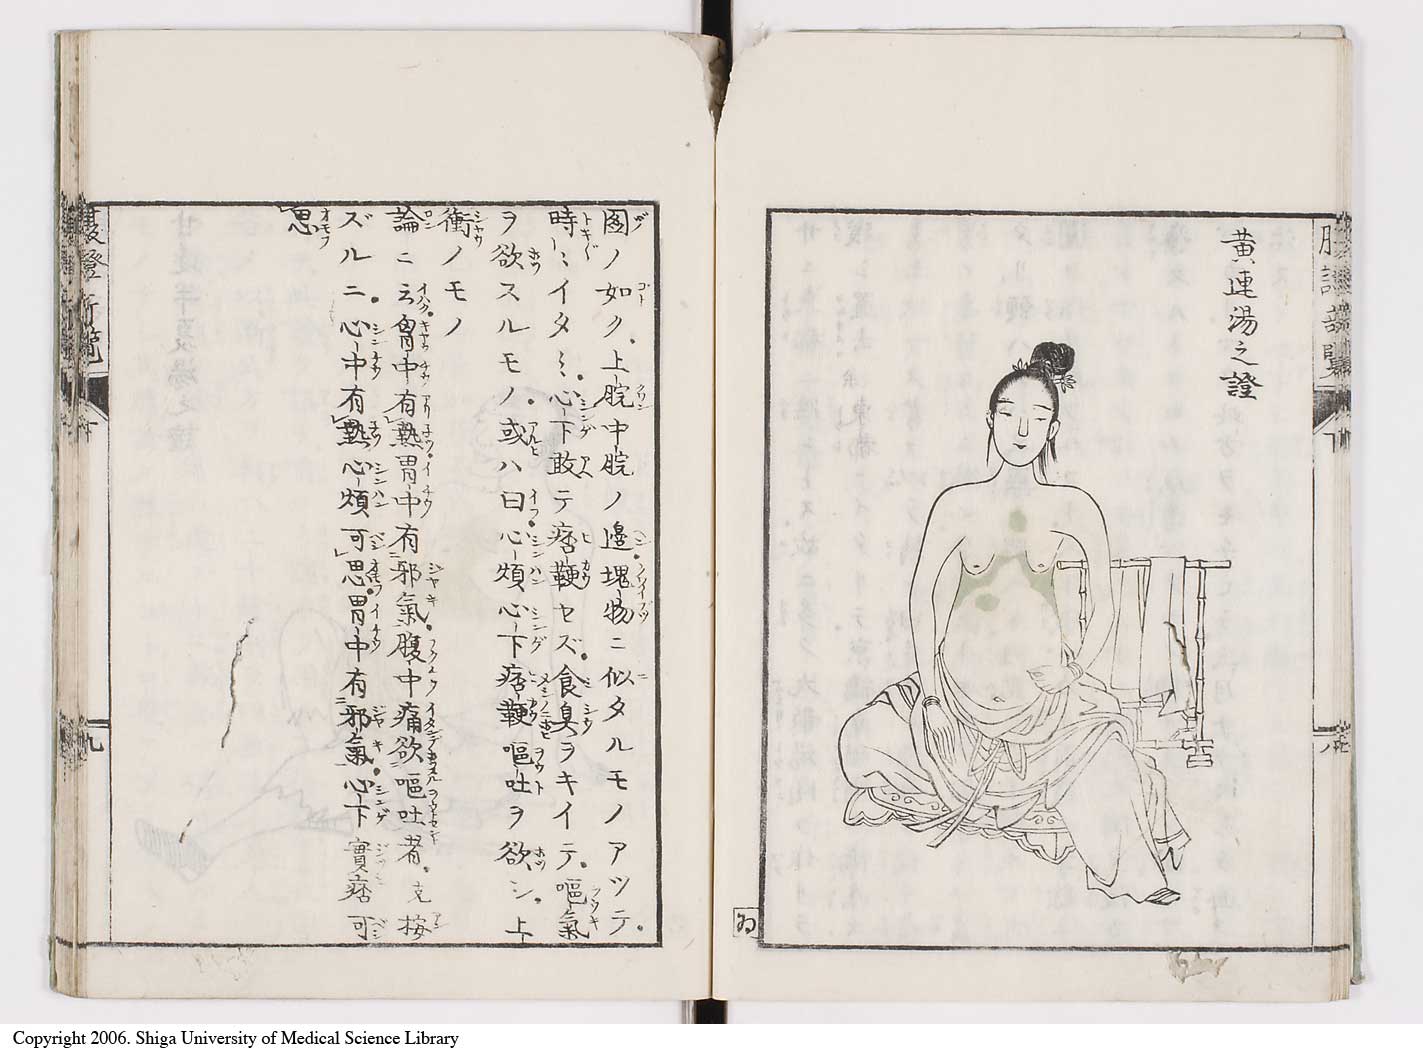 黄連湯之證
ゐ
圖ノ如ク。上脘中脘ノ邊塊物ニ似タルモノアツテ。
時〻イタミ心下敢テ痞鞕セズ。食臭ヲキイテ。嘔氣
ヲ欲スルモノ。或ハ曰心煩心下痞鞕嘔吐ヲ欲シ。上
衝ノモノ
論ニ云胷中有熱胃中有邪氣腹中痛欲嘔吐者。克按
ズルニ。心中有熱心煩可思胃中有邪氣。心下實痞可
思
九
Copyright 2006. Shiga University of Medical Science Library